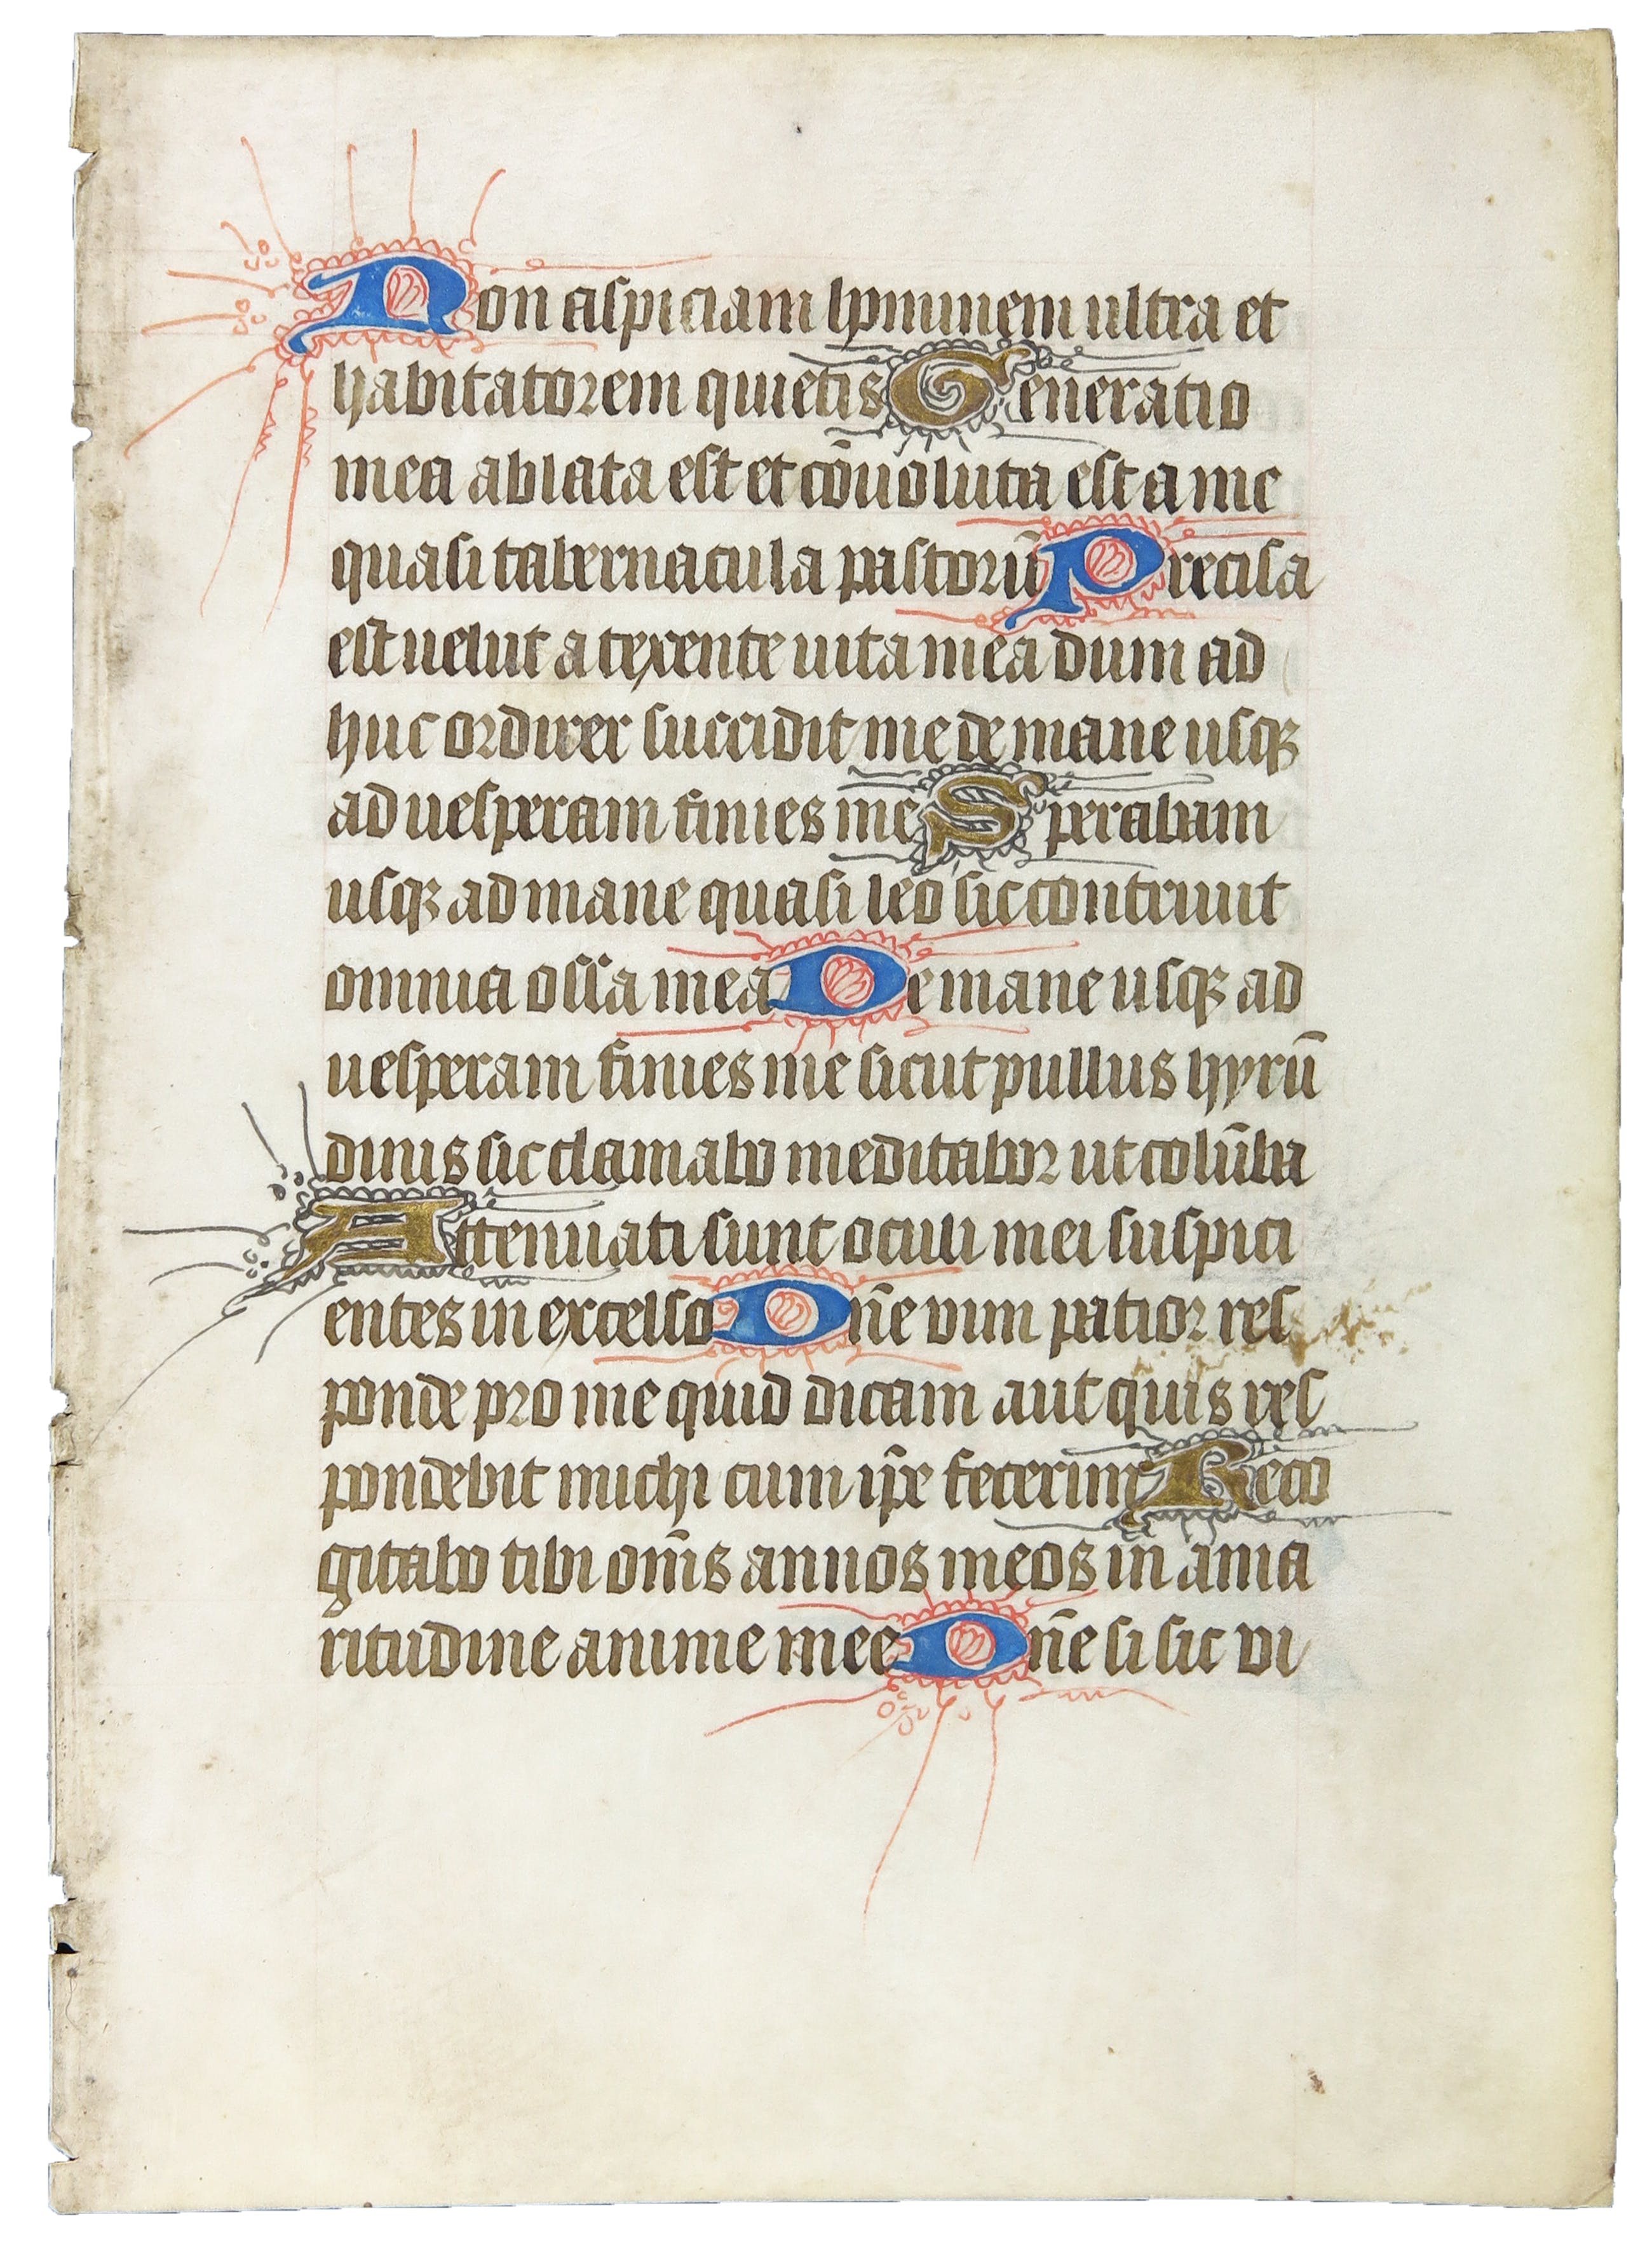 Non aspiciam hominem ultra et
habitatorem quietis Generatio
mea ablata est et cōuoluta est a me
quasi tabernacula pastorū Precisa
est uelut a texente uita mea dum ad
huc ordirer succidit me de mane usqꝫ
ad uesperam finies me Sperabam
usqꝫ ad mane quasi leo sic contriuit
omnia ossa mea De mane usqꝫ ad
uesperam finies me sicut pullus hyrū
dinis sic clamabo meditabor ut colūba
Attenuati sunt oculi mei suspici
entes in excelso Dñe vim patior res
ponde pro me quid dicam aut quis res
pondebit michi cum ip̄e fecerim Reco
gitabo tibi om̄s annos meos in ama
ritudine anime mee Dñe si sic vi